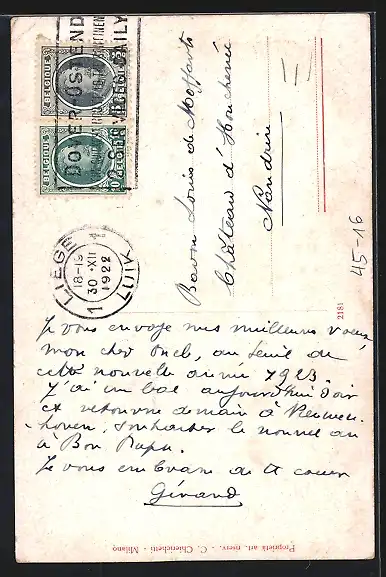 BELGIQUE
BELGIQUE
DOVER-OSTEND
DAILY
LIEGE 1 LUIK
18-19
30 ·XII
1922
Baron Louis de Moffarts
Château d'
Nandrin
45-16
2181
Je vous envoye mes meilleurs voeux,
mon cher oncle, au seuil de
cette nouvelle année 1923.
J'ai un bal aujourd'hui soir
et retourne demain à
hoven, souhaiter le nouvel an
à Bon Papa.
Je vous embrasse de tt coeur
Gérard
Proprietà art. riserv. - C. Chierichetti - Milano